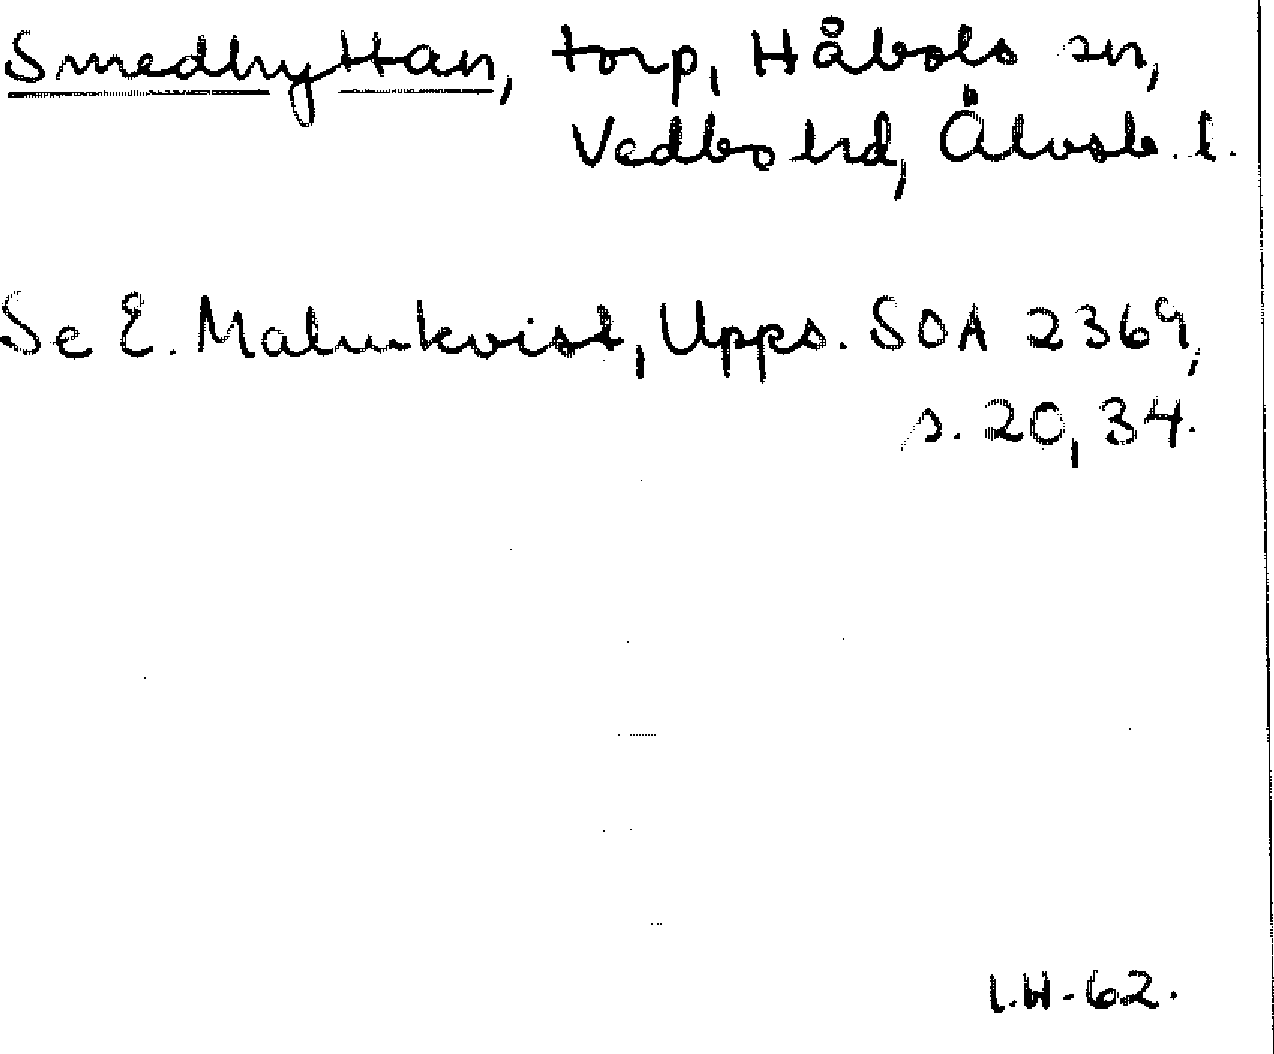 Smedhyttan, torp, Håbols sn,
Vedbo hd, Älvsb. l.
Se E. Malmkvist, Upps. SOA 2369,
s. 20, 34.
I.H-62.